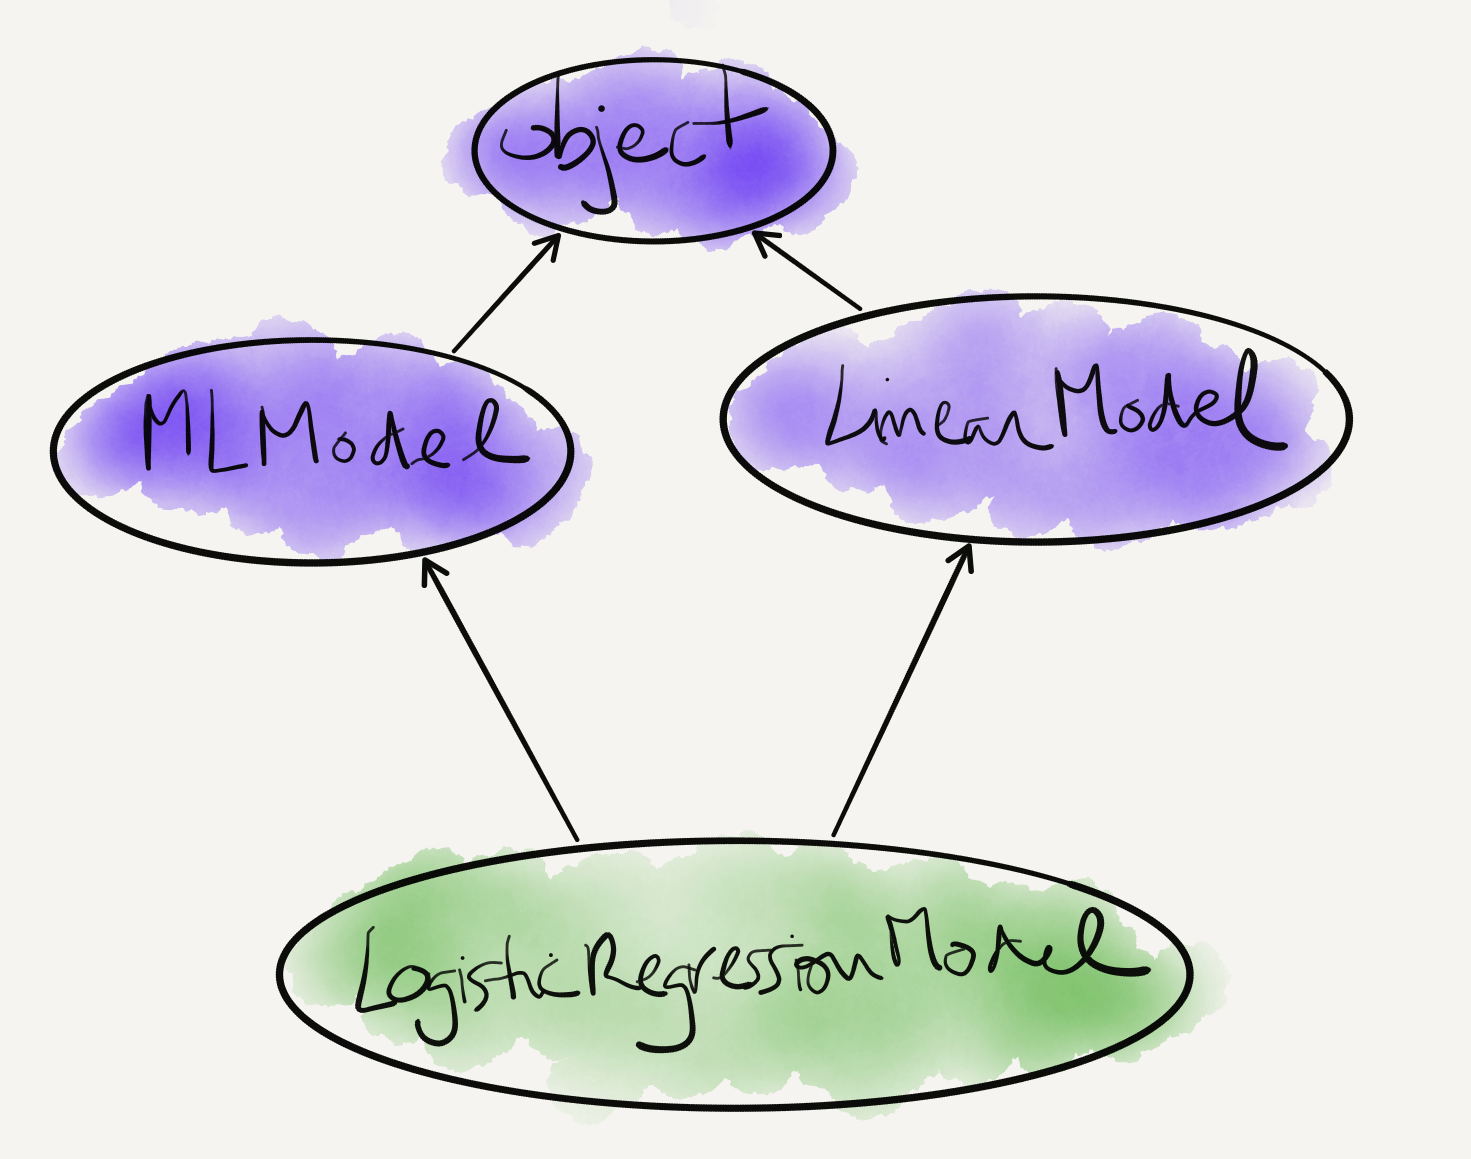 object
MLModel
LinearModel
LogisticRegressionModel